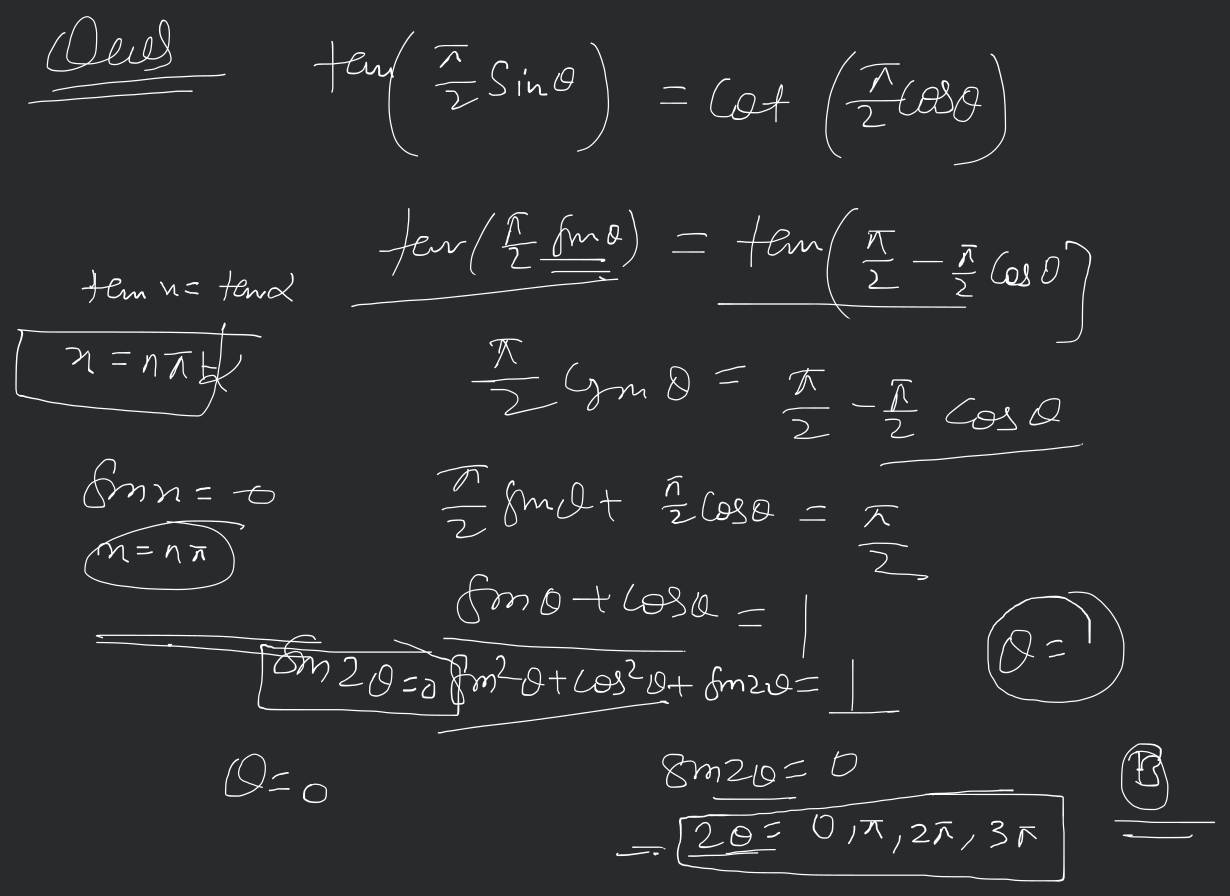 Ques tan(π/2 Sinθ) = Cot(π/2 cosθ)
tan(π/2 sinθ) = tan(π/2 - π/2 Cosθ]
tan x = tanα
x = nπ+α
π/2 sin θ = π/2 - π/2 cosθ
Sin x = 0
x = nπ
π/2 sinθ + π/2 cosθ = π/2
sinθ + cosθ = 1
θ =
sin2θ=0
sin²θ + cos²θ + sin2θ = 1
θ=0
sin2θ = 0
B
2θ = 0, π, 2π, 3π